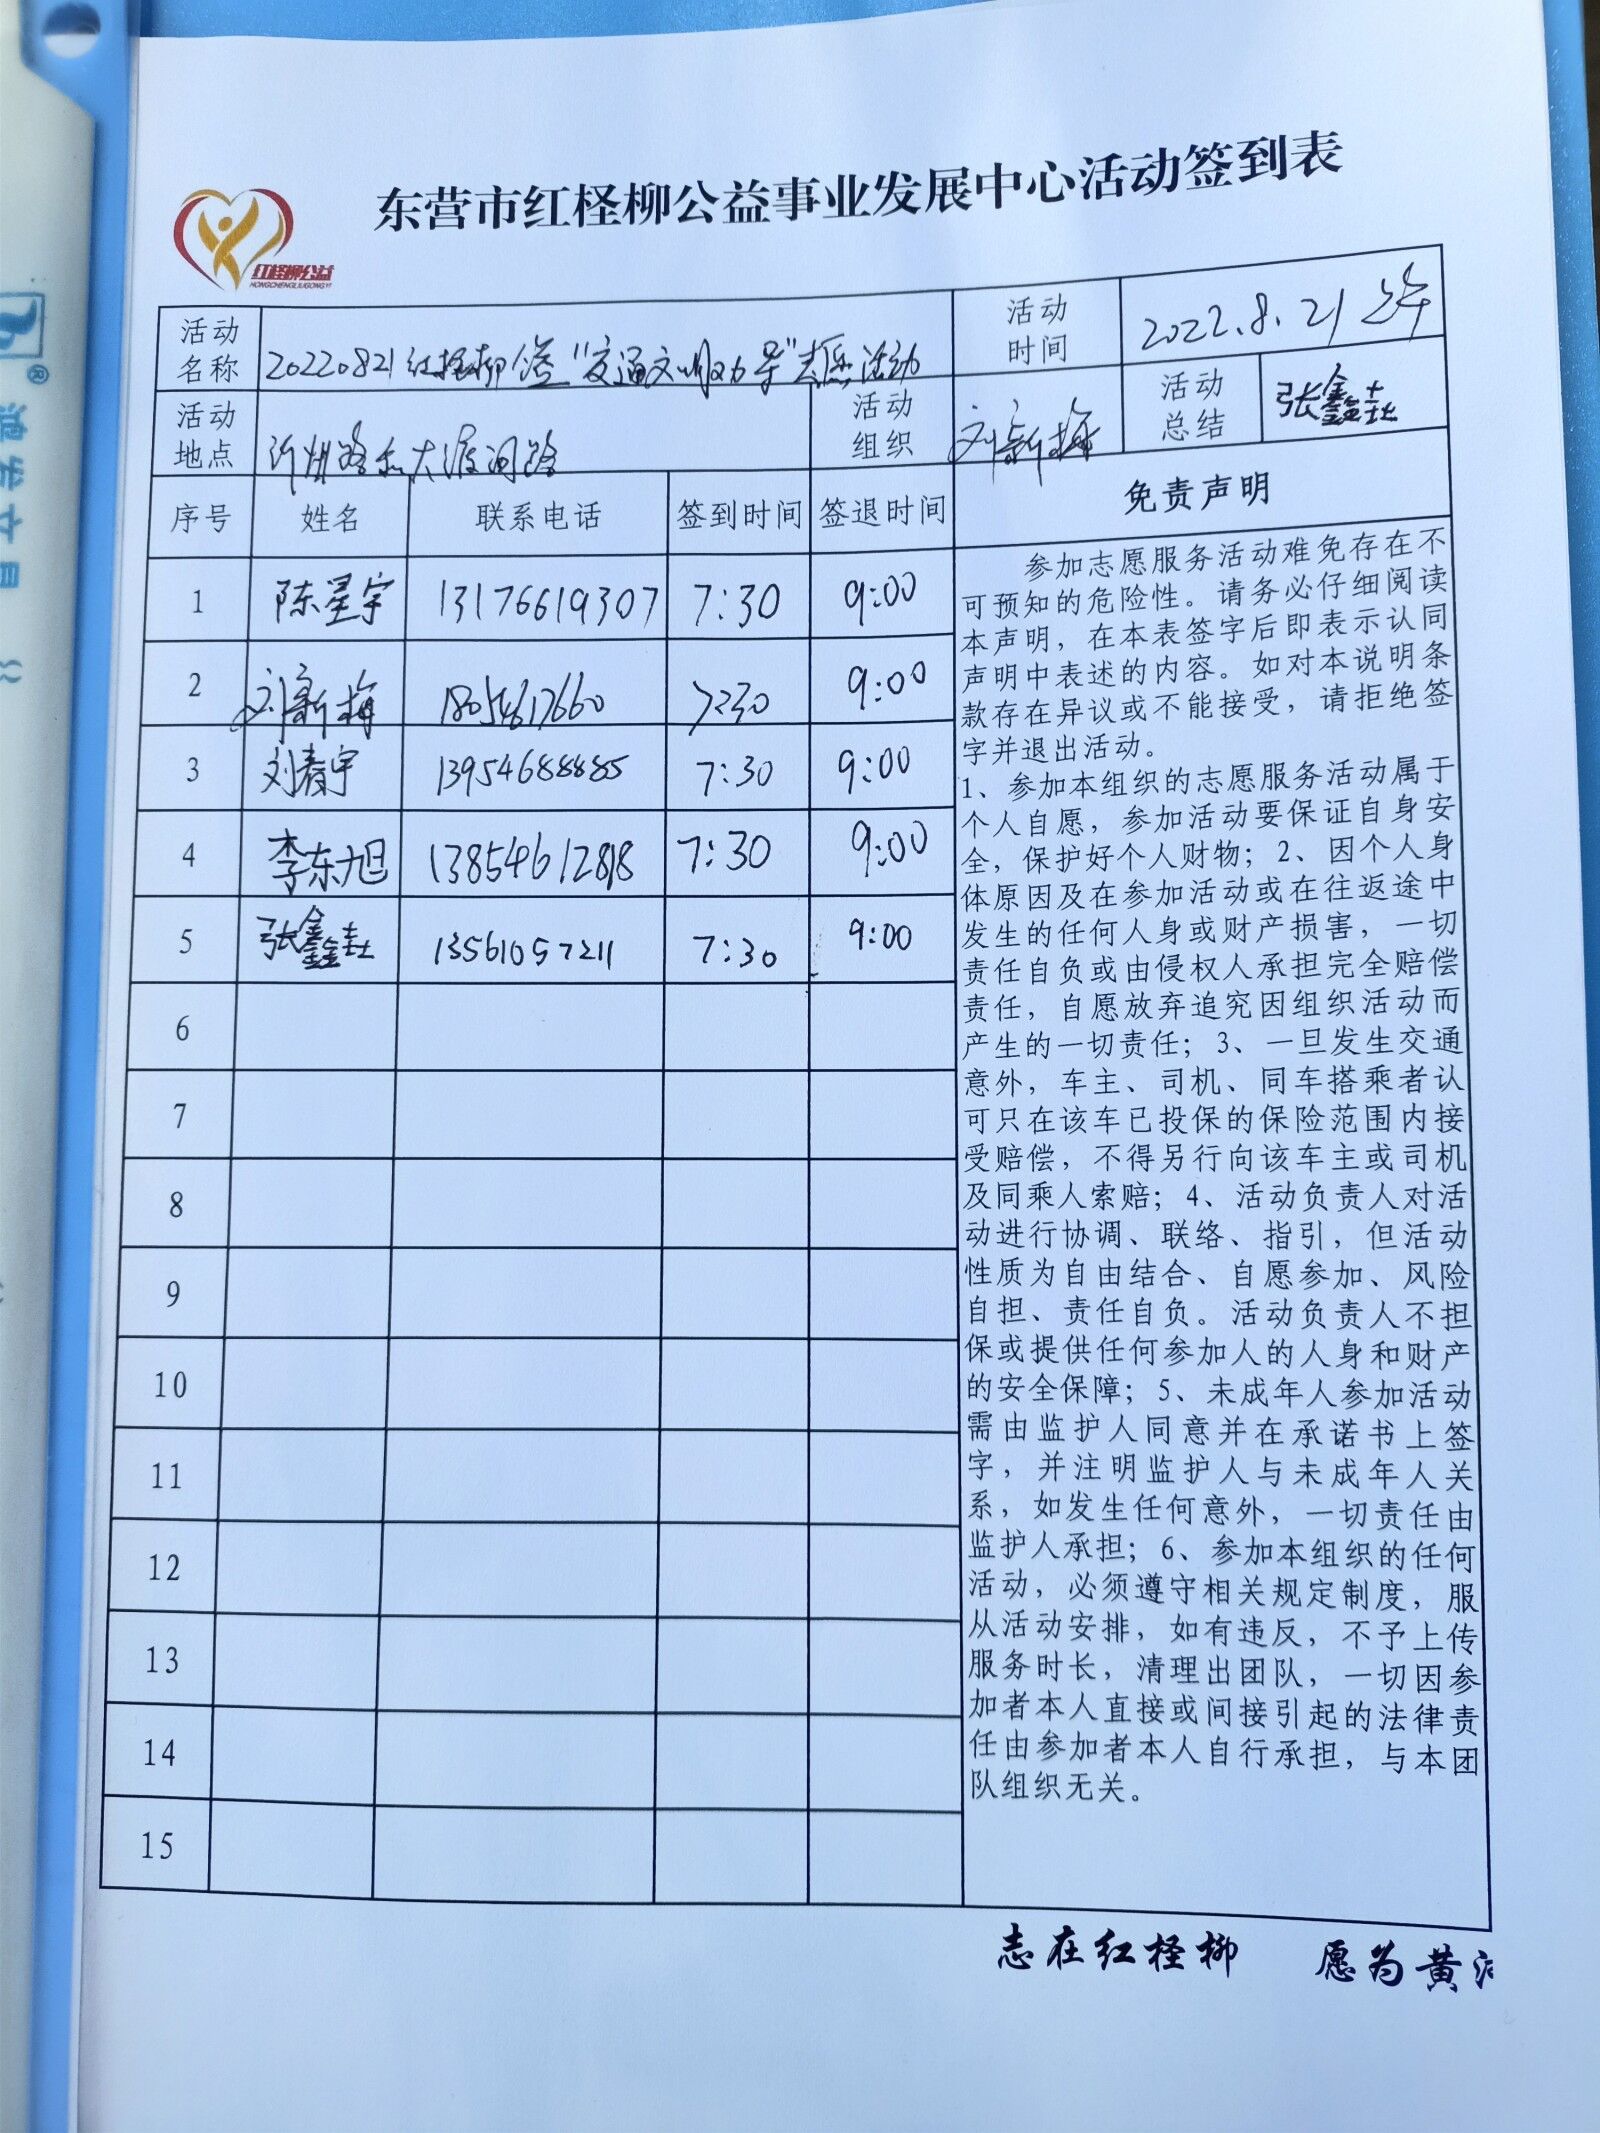 东营市红柽柳公益事业发展中心活动签到表
红柽柳公益
HONGCHENGLIUGONGYI
活动名称 20220821红柽柳公益"交通文明劝导"志愿活动 活动时间 2022.8.21 上午
活动地点 沂州路和大渡河路 活动组织 刘新梅 活动总结 张鑫喆
序号 姓名 联系电话 签到时间 签退时间 免责声明
1 陈星宇 13176619307 7:30 9:00
2 刘新梅 18054617660 7:30 9:00
3 刘春宇 13954688885 7:30 9:00
4 李东旭 13854612818 7:30 9:00
5 张鑫喆 13561057211 7:30 9:00
6
7
8
9
10
11
12
13
14
15
参加志愿服务活动难免存在不
可预知的危险性。请务必仔细阅读
本声明，在本表签字后即表示认同
声明中表述的内容。如对本说明条
款存在异议或不能接受，请拒绝签
字并退出活动。
1、参加本组织的志愿服务活动属于
个人自愿，参加活动要保证自身安
全，保护好个人财物；2、因个人身
体原因及在参加活动或在往返途中
发生的任何人身或财产损害，一切
责任自负或由侵权人承担完全赔偿
责任，自愿放弃追究因组织活动而
产生的一切责任；3、一旦发生交通
意外，车主、司机、同车搭乘者认
可只在该车已投保的保险范围内接
受赔偿，不得另行向该车主或司机
及同乘人索赔；4、活动负责人对活
动进行协调、联络、指引，但活动
性质为自由结合、自愿参加、风险
自担、责任自负。活动负责人不担
保或提供任何参加人的人身和财产
的安全保障；5、未成年人参加活动
需由监护人同意并在承诺书上签
字，并注明监护人与未成年人关
系，如发生任何意外，一切责任由
监护人承担；6、参加本组织的任何
活动，必须遵守相关规定制度，服
从活动安排，如有违反，不予上传
服务时长，清理出团队，一切因参
加者本人直接或间接引起的法律责
任由参加者本人自行承担，与本团
队组织无关。
志在红柽柳 愿为黄